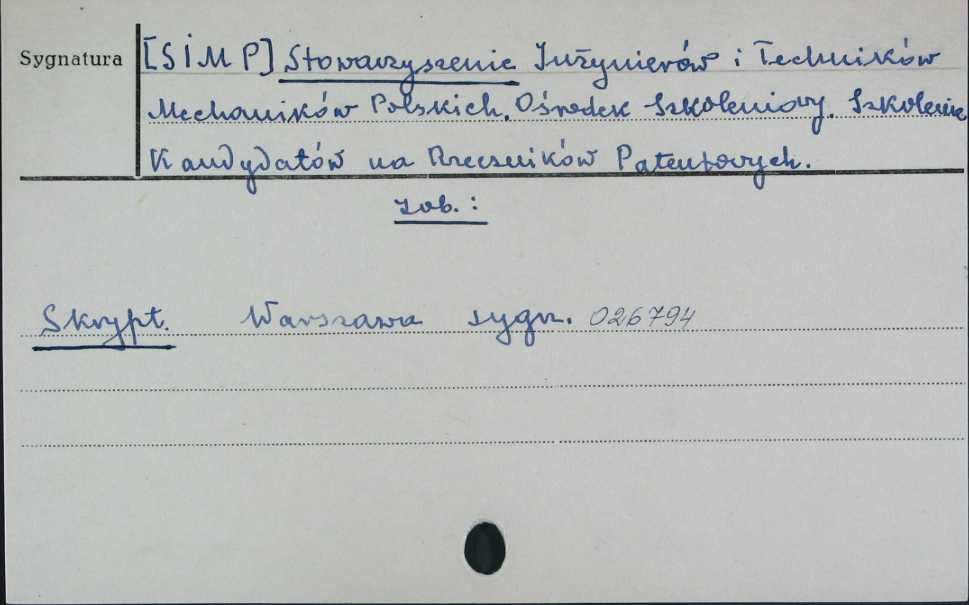 Sygnatura [SIMP] Stowarzyszenie Inżynierów i Techników
Mechaników Polskich. Ośrodek Szkoleniowy. Szkolenie
Kandydatów na Rzeczników Patentowych.
zob.:
Skrypt. Warszawa sygn. 026794